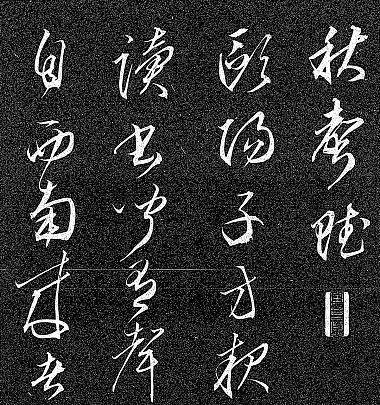 秋聲賦
歐陽子方夜
讀書聞有聲
自西南來者